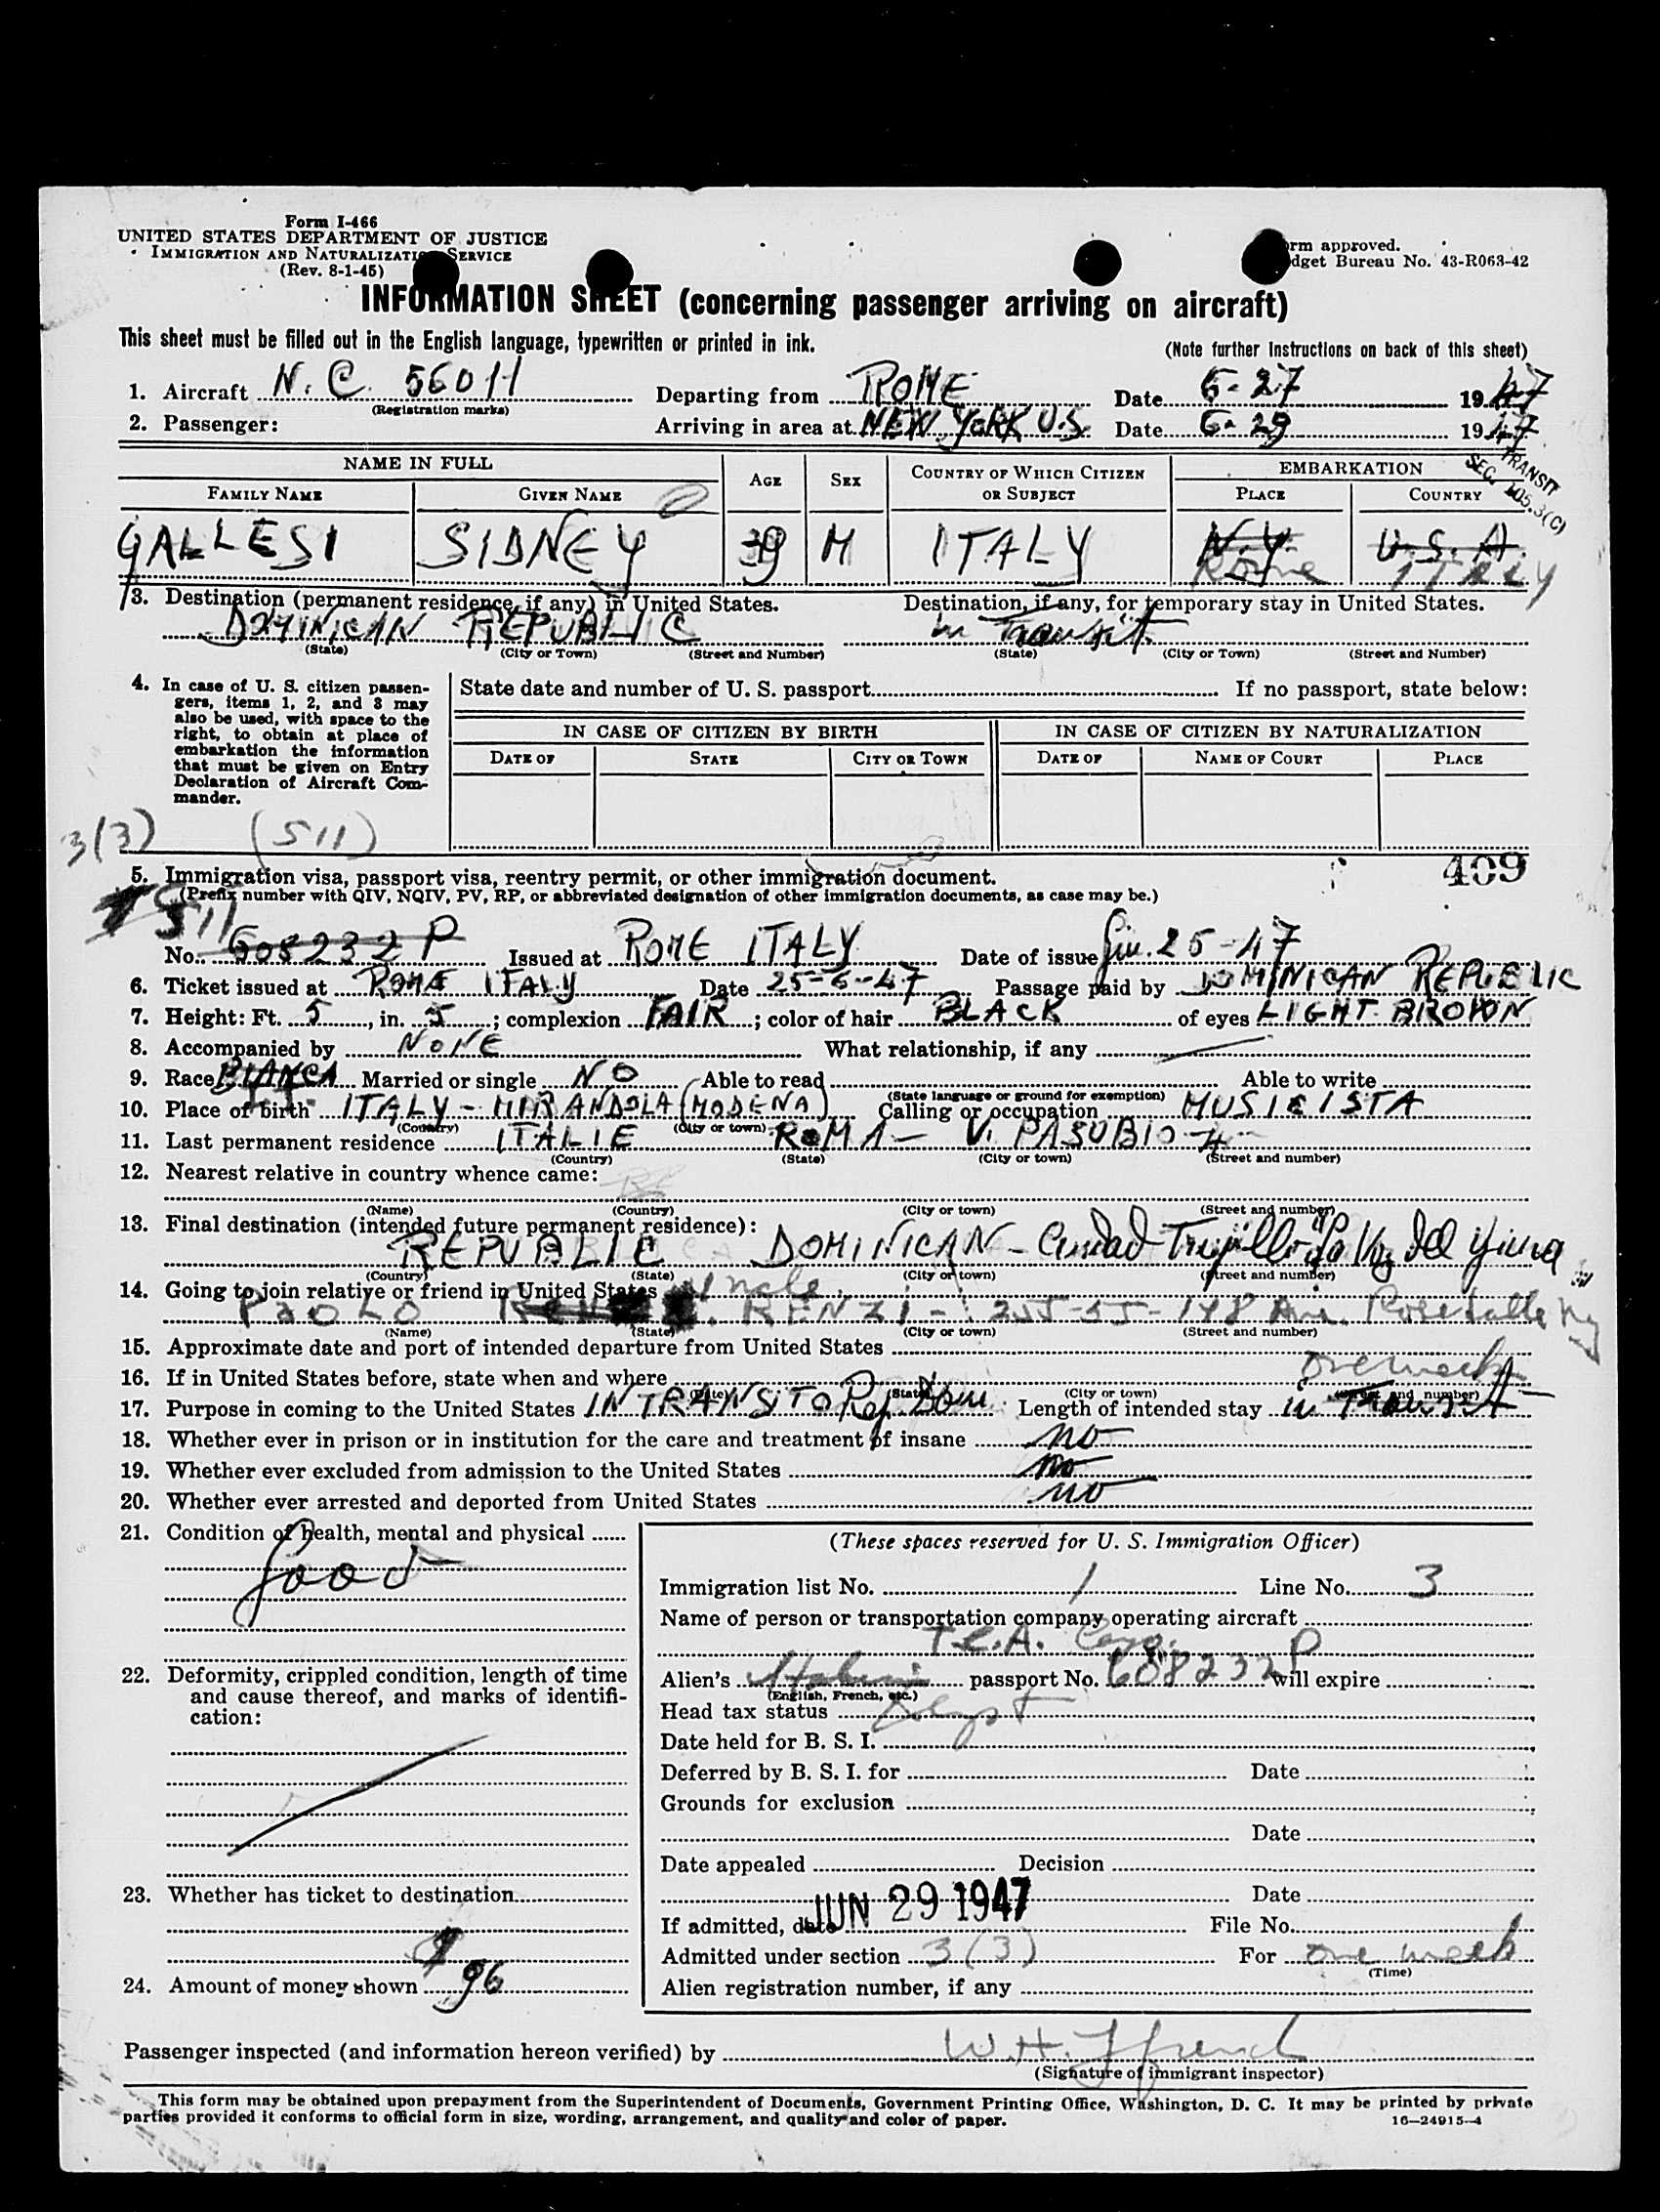 Form I-466
UNITED STATES DEPARTMENT OF JUSTICE
IMMIGRATION AND NATURALIZATION SERVICE
(Rev. 8-1-45)
rm approved.
dget Bureau No. 43-R063-42
INFORMATION SHEET (concerning passenger arriving on aircraft)
This sheet must be filled out in the English language, typewritten or printed in ink.
(Note further instructions on back of this sheet)
1. Aircraft N. C. 56011 Departing from ROME Date 6-27 1947
(Registration marks)
2. Passenger: Arriving in area at NEW YORK U.S. Date 6-29 1947
TRANSIT
SEC. 105.3(C)
NAME IN FULL AGE SEX COUNTRY OF WHICH CITIZEN OR SUBJECT EMBARKATION
FAMILY NAME GIVEN NAME PLACE COUNTRY
GALLESI SIDNEY 39 M ITALY N.Y. U.S.A.
Rome ITALY
3. Destination (permanent residence, if any) in United States. Destination, if any, for temporary stay in United States.
DOMINICAN REPUBLIC in Transit
(State) (City or Town) (Street and Number) (State) (City or Town) (Street and Number)
4. In case of U. S. citizen passengers, items 1, 2, and 3 may
also be used, with space to the
right, to obtain at place of
embarkation the information
that must be given on Entry
Declaration of Aircraft Commander.
State date and number of U. S. passport If no passport, state below:
IN CASE OF CITIZEN BY BIRTH IN CASE OF CITIZEN BY NATURALIZATION
DATE OF STATE CITY OR TOWN DATE OF NAME OF COURT PLACE
3(3) (511)
409
5. Immigration visa, passport visa, reentry permit, or other immigration document.
(Prefix number with QIV, NQIV, PV, RP, or abbreviated designation of other immigration documents, as case may be.)
511
No. 608232 P Issued at ROME ITALY Date of issue Giu. 25-47
6. Ticket issued at ROME ITALY Date 25-6-47 Passage paid by DOMINICAN REPUBLIC
7. Height: Ft. 5, in. 5; complexion FAIR; color of hair BLACK of eyes LIGHT BROWN
8. Accompanied by NONE What relationship, if any
9. Race BIANCA Married or single NO Able to read Able to write
(State language or ground for exemption)
10. Place of birth ITALY - MIRANDOLA (MODENA) Calling or occupation MUSICISTA
(Country) (City or town)
11. Last permanent residence ITALIE ROMA - V. PASUBIO 4
(Country) (State) (City or town) (Street and number)
12. Nearest relative in country whence came:
(Name) (Country) (City or town) (Street and number)
13. Final destination (intended future permanent residence):
REPUBLIC DOMINICAN - Ciudad Trujillo
(Country) (State) (City or town) (Street and number)
14. Going to join relative or friend in United States Uncle
PAOLO RENZI - 255-55-148 Ave. Rosedalle NY
(Name) (State) (City or town) (Street and number)
15. Approximate date and port of intended departure from United States
one week
16. If in United States before, state when and where
(Date) (State) (City or town) (Street and number)
17. Purpose in coming to the United States IN TRANSITO Rep Dom Length of intended stay in Transit
18. Whether ever in prison or in institution for the care and treatment of insane no
19. Whether ever excluded from admission to the United States no
20. Whether ever arrested and deported from United States no
21. Condition of health, mental and physical
good
22. Deformity, crippled condition, length of time
and cause thereof, and marks of identification:
23. Whether has ticket to destination
24. Amount of money shown 96
(These spaces reserved for U. S. Immigration Officer)
Immigration list No. 1 Line No. 3
Name of person or transportation company operating aircraft
T.C.A.
Alien's Italian passport No. 608232P will expire
(English, French, etc.)
Head tax status
Date held for B. S. I.
Deferred by B. S. I. for Date
Grounds for exclusion
Date
Date appealed Decision
Date
If admitted, date JUN 29 1947 File No.
Admitted under section 3(3) For one week
(Time)
Alien registration number, if any
Passenger inspected (and information hereon verified) by W.H.
(Signature of immigrant inspector)
This form may be obtained upon prepayment from the Superintendent of Documents, Government Printing Office, Washington, D. C. It may be printed by private
parties provided it conforms to official form in size, wording, arrangement, and quality and color of paper.
16-24915-4